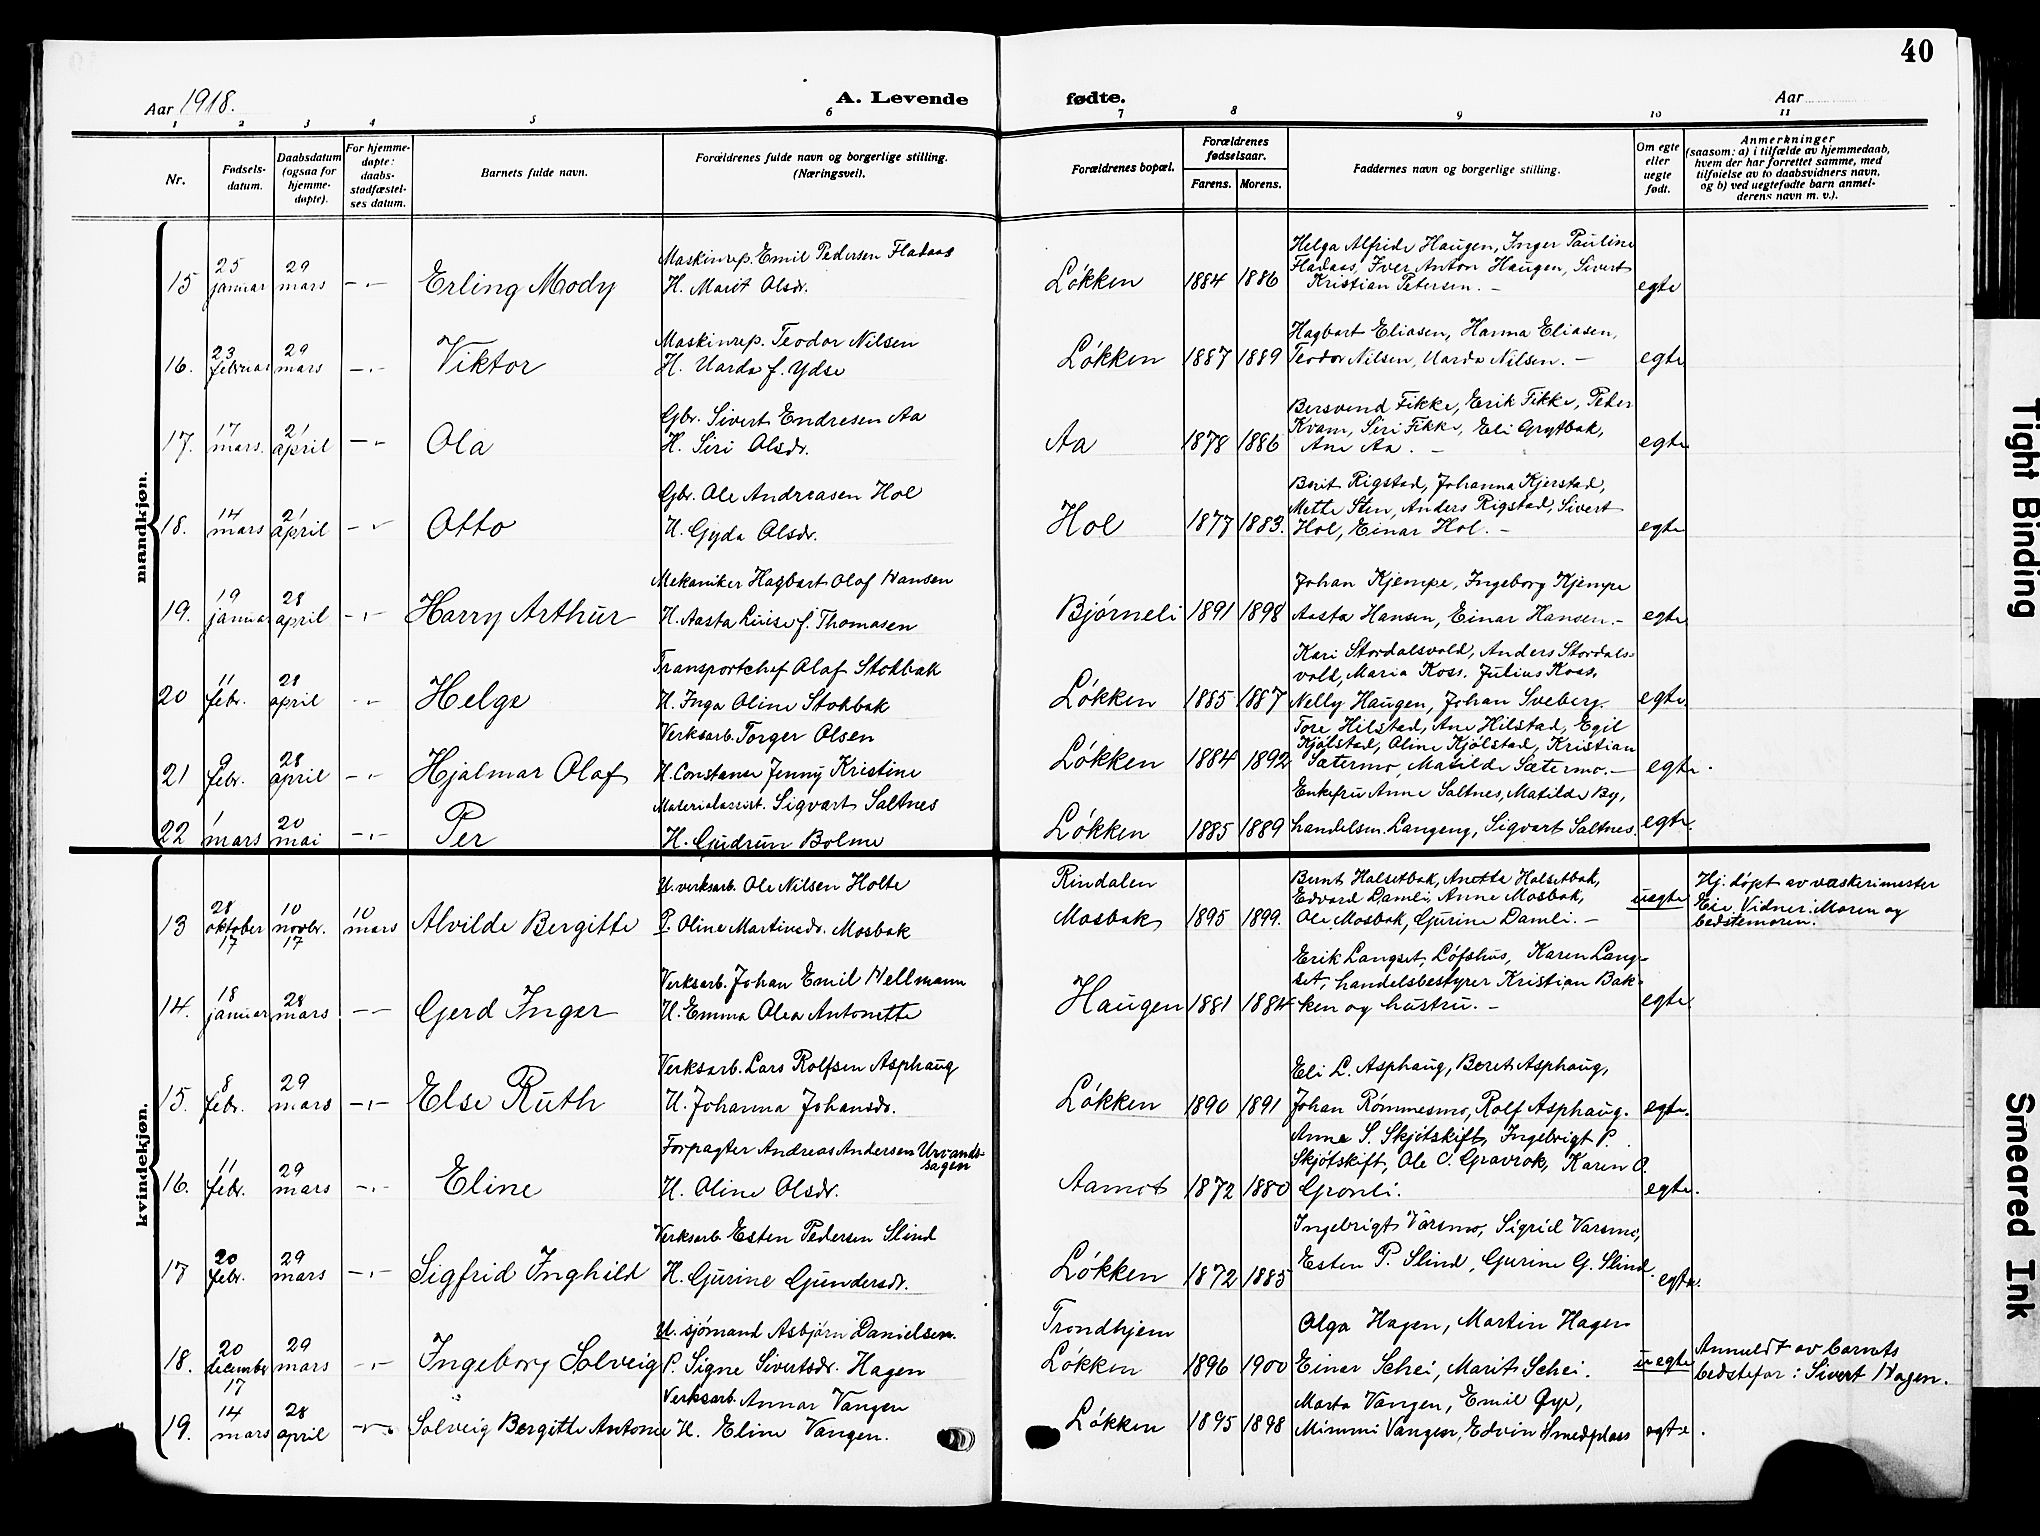 40
Aar 1918.
A. Levende
fødte.
Aar
1 2 3 4 5 6 7 8 9 10 11
Nr.
Fødsels-
datum.
Daabsdatum
(ogsaa for
hjemme-
døpte).
For hjemme-
døpte:
daabs-
stadfæstel-
ses datum.
Barnets fulde navn.
Forældrenes fulde navn og borgerlige stilling.
(Næringsvei).
Forældrenes bopæl.
Forældrenes
fødselsaar.
Farens. Morens.
Faddernes navn og borgerlige stilling.
Om egte
eller
uegte
født.
Anmerkninger
(saasom: a) i tilfælde av hjemmedaab,
hvem der har forrettet samme, med
tilføielse av to daabsvidners navn,
og b) ved uegtefødte barn anmel-
derens navn m. v.).
mandkjøn.
15
25 januar
29 mars
- . -
Erling Mody
Maskinrep. Emil Pedersen Fladaas
H. Marit Olsdr.
Løkken
1884 1886
Helga Alfride Haugen, Inger Pauline
Fladaas, Iver Anton Haugen, Sivert
Kristian Petersen. -
egte
16.
23 februar
29 mars
- . -
Viktor
Maskinrep. Teodor Nilsen
H. Uarda f. Ydse
Løkken
1887 1889
Hagbart Eliasen, Hanna Eliasen,
Teodor Nilsen, Uarda Nilsen. -
egte
17.
17 mars.
21 april
- . -
Ola
Gbr. Sivert Endresen Aa
H. Siri Olsdr.
Aa
1878 1886
Bersvend Fikke, Erik Fikke, Peder
Kvam, Siri Fikke, Eli Grytbak,
Ane Aa. -
egte
18.
14 mars
21 april
- . -
Otto
Gbr. Ole Andreasen Hol
H. Gyda Olsdr.
Hol
1877 1883.
Berit Rigstad, Johanna Kjerstad,
Mette Sten, Anders Rigstad, Sivert
Hol, Einar Hol. -
egte
19.
19 januar
28 april
- . -
Harry Arthur
Mekaniker Hagbart Olaf Hansen
H. Aasta Luise f. Thomasen
Bjørneli
1891 1898
Johan Kjempe, Ingeborg Kjempe
Aasta Hansen, Einar Hansen. -
egte
20
11 febr.
28 april
- . -
Helge
Transportchef Olaf Stokbak
H. Inga Oline Stokbak
Løkken
1885 1887
Kari Stordalsvold, Anders Stordals-
vold, Maria Koss, Julius Koss,
Nelly Haugen, Johan Sveberg.
egte
21
9 febr.
28 april
- . -
Hjalmar Olaf
Verksarb. Torger Olsen
H. Constanse Jenny Kristine
Løkken
1884 1892
Tore Hilstad, Ane Hilstad, Egil
Kjølstad, Oline Kjølstad, Kristian
Sætermo, Matilde Sætermo. -
egte.
22
1 mars
20 mai
- . -
Per
Materialassist. Sigvart Saltnes
H. Gudrun Bolme
Løkken
1885 1889
Enkefru Anne Saltnes, Matilde By,
handelsm. Langeng, Sigvart Saltnes.
egte.
kvindekjøn.
13
28 oktober 17
10 novbr. 17
10 mars
Alvilde Bergitte
U. verksarb. Ole Nilsen Holte
P. Oline Martinsdr. Mosbak
Rindalen
Mosbak
1895 1899.
Bernt Halsetbak, Anette Halsetbak,
Edvard Damli, Anne Mosbak,
Ole Mosbak, Gurine Damli. -
uegte
Hj. døpt av vaskerimester
Eie. Vidner: Moren og
bedstemoren.
14.
18 januar
28 mars
- -
Gjerd Inger
Verksarb. Johan Emil Hellmann
H. Emma Olea Antonette
Haugen
1881 1884
Erik Langset, Løfshus, Karen Lang-
set, handelsbestyrer Kristian Bak-
ken og hustru. -
egte.
15.
8 febr.
29 mars
- . -
Else Ruth
Verksarb. Lars Rolfsen Asphaug
H. Johanna Johansdr.
Løkken
1890 1891
Eli L. Asphaug, Beret Asphaug,
Johan Rømmesmo, Rolf Asphaug.
egte.
16.
11 febr.
29 mars
- . -
Eline
Forpagter Andreas Andersen Urvands-
sagen
H. Oline Olsdr.
Aamot
1872 1880
Anne S. Skjøtskift, Ingebrigt P.
Skjøtskift, Ole C. Gravrok, Karen O.
Gronli.
egte.
17
20 febr.
29 mars
- . -
Sigfrid Inghild
Verksarb. Esten Pedersen Slind
H. Gurine Gundersdr.
Løkken
1872 1885
Ingebrigt Varsmo, Sigrid Varsmo,
Esten P. Slind, Gurine G. Slind.
egte.
18.
20 december 17
29 mars
- . -
Ingeborg Solveig
U. sjømand Asbjørn Danielsen.
P. Signe Sivertsdr. Hagen
Trondhjem
Løkken
1896 1900
Olga Hagen, Martin Hagen
Einar Schei, Marit Schei.
uegte
Anmeldt av barnets
bedstefar: Sivert Hagen.
19.
14 mars
28 april
- . -
Solveig Bergitte Antonie
Verksarb. Annar Vangen
H. Eline Vangen.
Løkken
1895 1898
Marta Vangen, Emil Øye,
Mimmi Vangen, Edvin Smedplass
egte.
Tight Binding
Smeared Ink